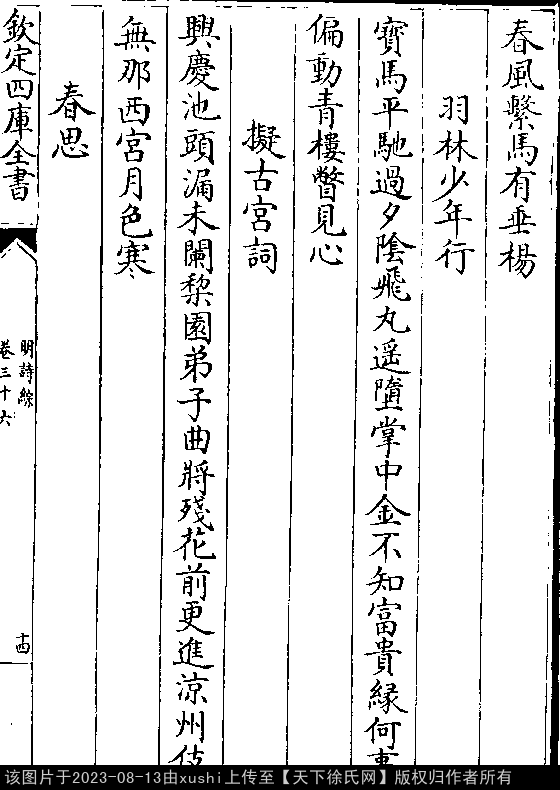 春風繫馬有垂楊
羽林少年行
寶馬平馳過夕陰飛丸遥墮掌中金不知富貴縁何事
偏動青樓瞥見心
擬古宮詞
興慶池頭漏未闌梨園弟子曲將殘花前更進涼州伎
無那西宮月色寒
春思
欽定四庫全書
明詩綜
卷三十六
十四
该图片于2023-08-13由xushi上传至【天下徐氏网】版权归作者所有